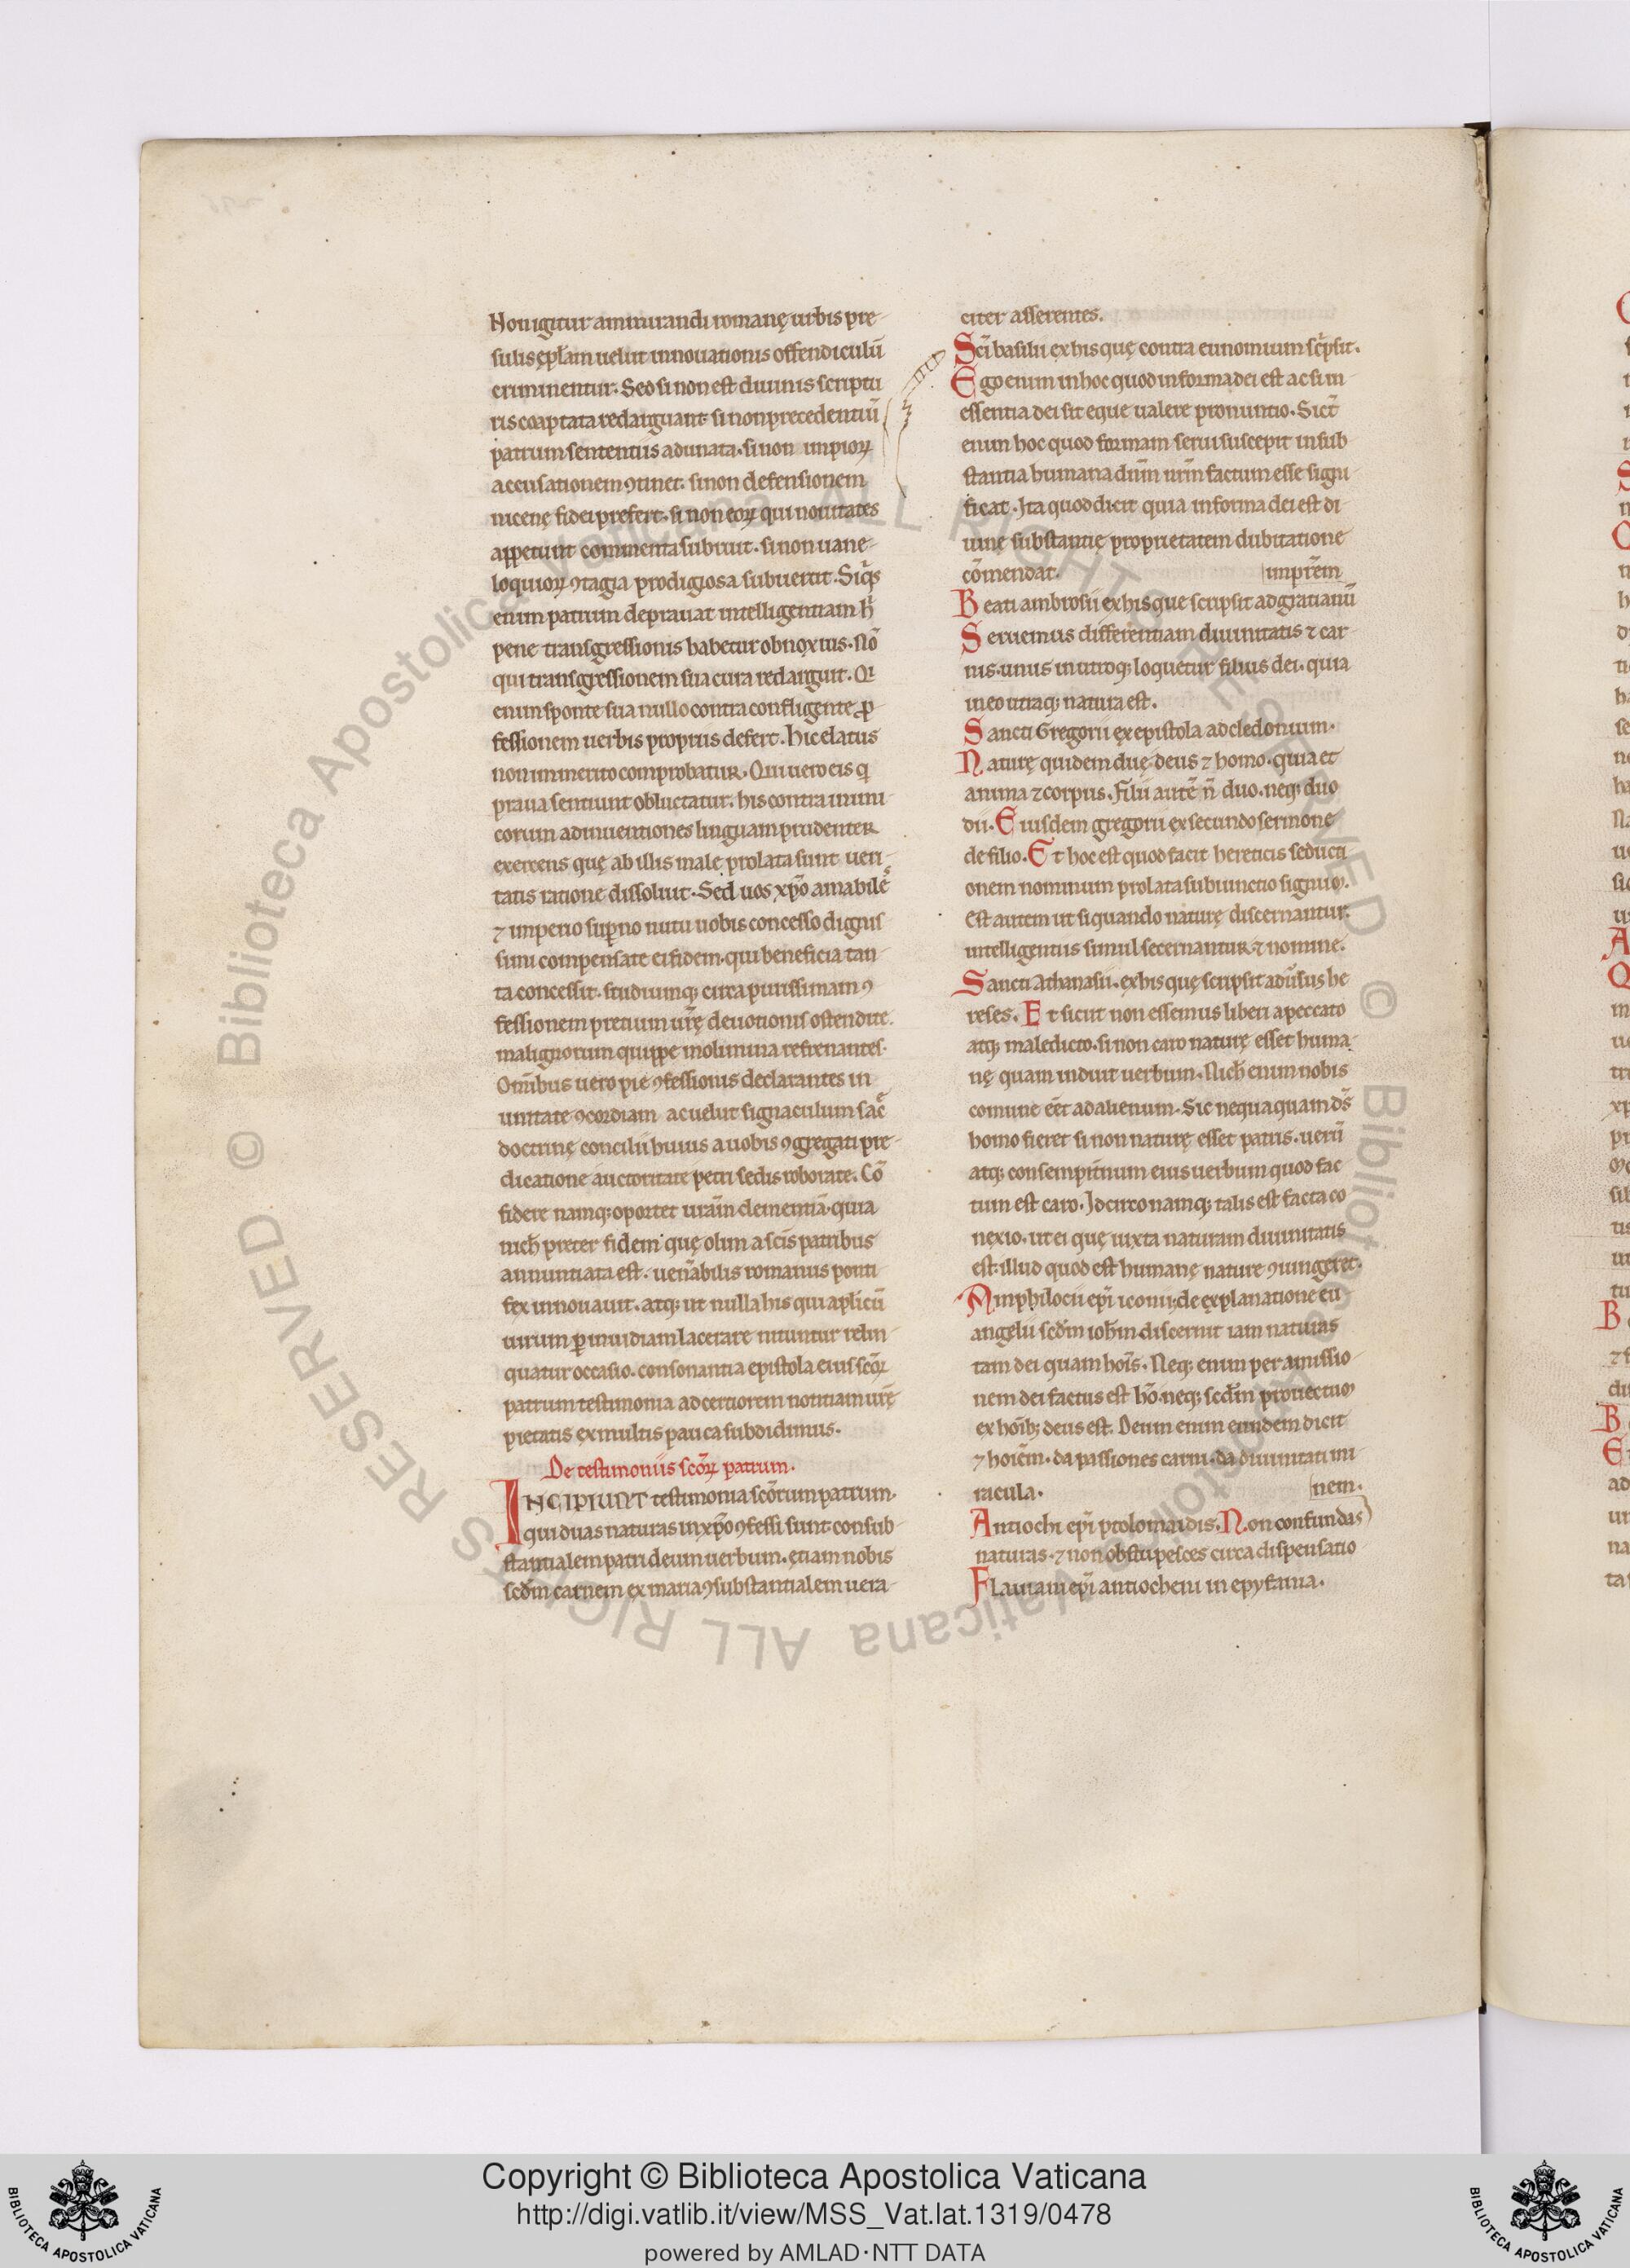 Non igitur ammirandi romanę urbis pre
sulis ep̄lam uelut innouationis offendiculū
criminentur. Sed si non est diuinis scriptu
ris coaptata redarguant. si non precedentiū
patrum sententiis adunata. si non impioꝝ
accusationem ꝯtinet. si non defensionem
nicenę fidei prefert. si non eoꝝ qui nouitates
appetunt commenta subruit. si non uane
loquioꝝ ꝯtagia prodigiosa subuertit. Siq̇s
enim patrum deprauat intelligentiam h̄
pene transgressionis habetur obnoxius. Nō
qui transgressionem sua cura redarguit. Q̇
enim sponte sua nullo contra confligente ꝓ
fessionem uerbis propriis defert. hic elatus
non inmerito comprobatur. Qui uero eis q̇
praua sentiunt obluctatur. his contra inimi
corum adinuentiones linguam prudenter
exercens quę ab illis male prolata sunt ueri
tatis ratione dissoluit. Sed uos xp̄o amabiles
⁊ imperio suꝑno nutu uobis concesso dignis
simi compensate ei fidem. qui beneficia tan
ta concessit. studiumq; circa purissimam ꝯ
fessionem pretium ur̄ę deuotionis ostendite.
malignorum quippe molimina refrenantes.
Om̄ibus uero pie ꝯfessionis declarantes in
unitate ꝯcordiam ac uelut signaculum sac̄
doctrinę concilii huius a uobis ꝯgregati pre
dicatione auctoritate petri sedis roborate. Cō
fidere namq; oportet ur̄am clementiā. quia
nich̄ preter fidem quę olim a sc̄is patribus
annuntiata est. uen̄abilis romanus ponti
fex innouauit. atq; ut nulla his qui apl̄icū
uirum ꝑ inuidiam lacerare nituntur relin
quatur occasio. consonantia epistola eius sc̄oꝝ
patrum testimonia ad certiorem notitiam ur̄ę
pietatis ex multis pauca subdidimus.
De testimoniis sc̄oꝝ patrum.
INCIPIUNT testimonia sc̄orum patrum.
qui duas naturas in xp̄o ꝯfessi sunt consub
stantialem patri deum uerbum. ętiam nobis
sc̄dm carnem ex maria ꝯsubstantialem uera
citer asserentes.
Sc̄i basilii ex his quę contra eunomium sc̄psit.
Ego enim in hoc quod in forma dei est ac si in
essentia dei sit eque ualere pronuntio. Sict̄
enim hoc quod formam serui suscepit in sub
stantia humana dn̄m nr̄m factum esse signi
ficat. Ita quod dicit quia in forma dei est di
uinę substantię proprietatem dubitatione
cōmendat. impr̄em
Beati ambrosii ex his que scripsit ad gratianū
Seruemus differentiam diuinitatis ⁊ car
nis. unus in utroq; loquetur filius dei. quia
in eo utraq; natura est.
Sancti Gregorii ex epistola ad cledonium.
Naturę quidem duę. deus ⁊ homo. quia et
anima ⁊ corpus. Filii autē n̄ duo. neq; duo
dii. Eiusdem gregorii ex secundo sermone
de filio. Et hoc est quod facit hereticis seducti
onem nominum prolata subiunctio
est autem ut si quando naturę discernantur.
intelligentiis simul secernantur ⁊ nomine.
Sancti Athanasii. ex his quę scripsit aduͥsus he
reses. Et sicut non essemus liberi a peccato
atq; maledicto. si non caro naturę esset huma
nę quam induit uerbum. Nich̄ enim nobis
comune eēt ad alienum. Sic nequaquam ds̄
homo fieret si non naturę esset patris. uerū
atq; consempit̄num eius uerbum quod fac
tum est caro. Idcirco namq; talis est facta co
nexio. ut ei quę iuxta naturam diuinitatis
est. illud quod est humanę nature ꝯiungeret.
Amphilocii ep̄i iconii; de explanatione eu
angelii sc̄dm ioh̄m. discernit iam naturas
tam dei quam hoīs. Neq; enim per amissio
nem dei factus est hō. neq; sc̄dm prouectum
ex hoīb; deus est. Deum enim eundem dicit
⁊ hoīem. da passiones carni. da diuinitati mi
racula. nem.
Antiochi ep̄i ptolomaidis. Non confundas
naturas. ⁊ non obstupesces circa dispensatio
Flauiani ep̄i antiocheni in epyfania.
Copyright © Biblioteca Apostolica Vaticana
http://digi.vatlib.it/view/MSS_Vat.lat.1319/0478
powered by AMLAD·NTT DATA
BIBLIOTECA APOSTOLICA VATICANA
BIBLIOTECA APOSTOLICA VATICANA
© Biblioteca Apostolica Vaticana ALL RIGHTS RESERVED © Biblioteca Apostolica Vaticana ALL RIGHTS RESERVED